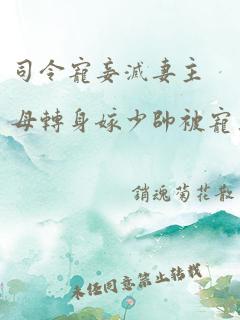 司令寵妾滅妻主
母轉身嫁少帥被寵
銷魂菊花散
未經同意禁止轉載